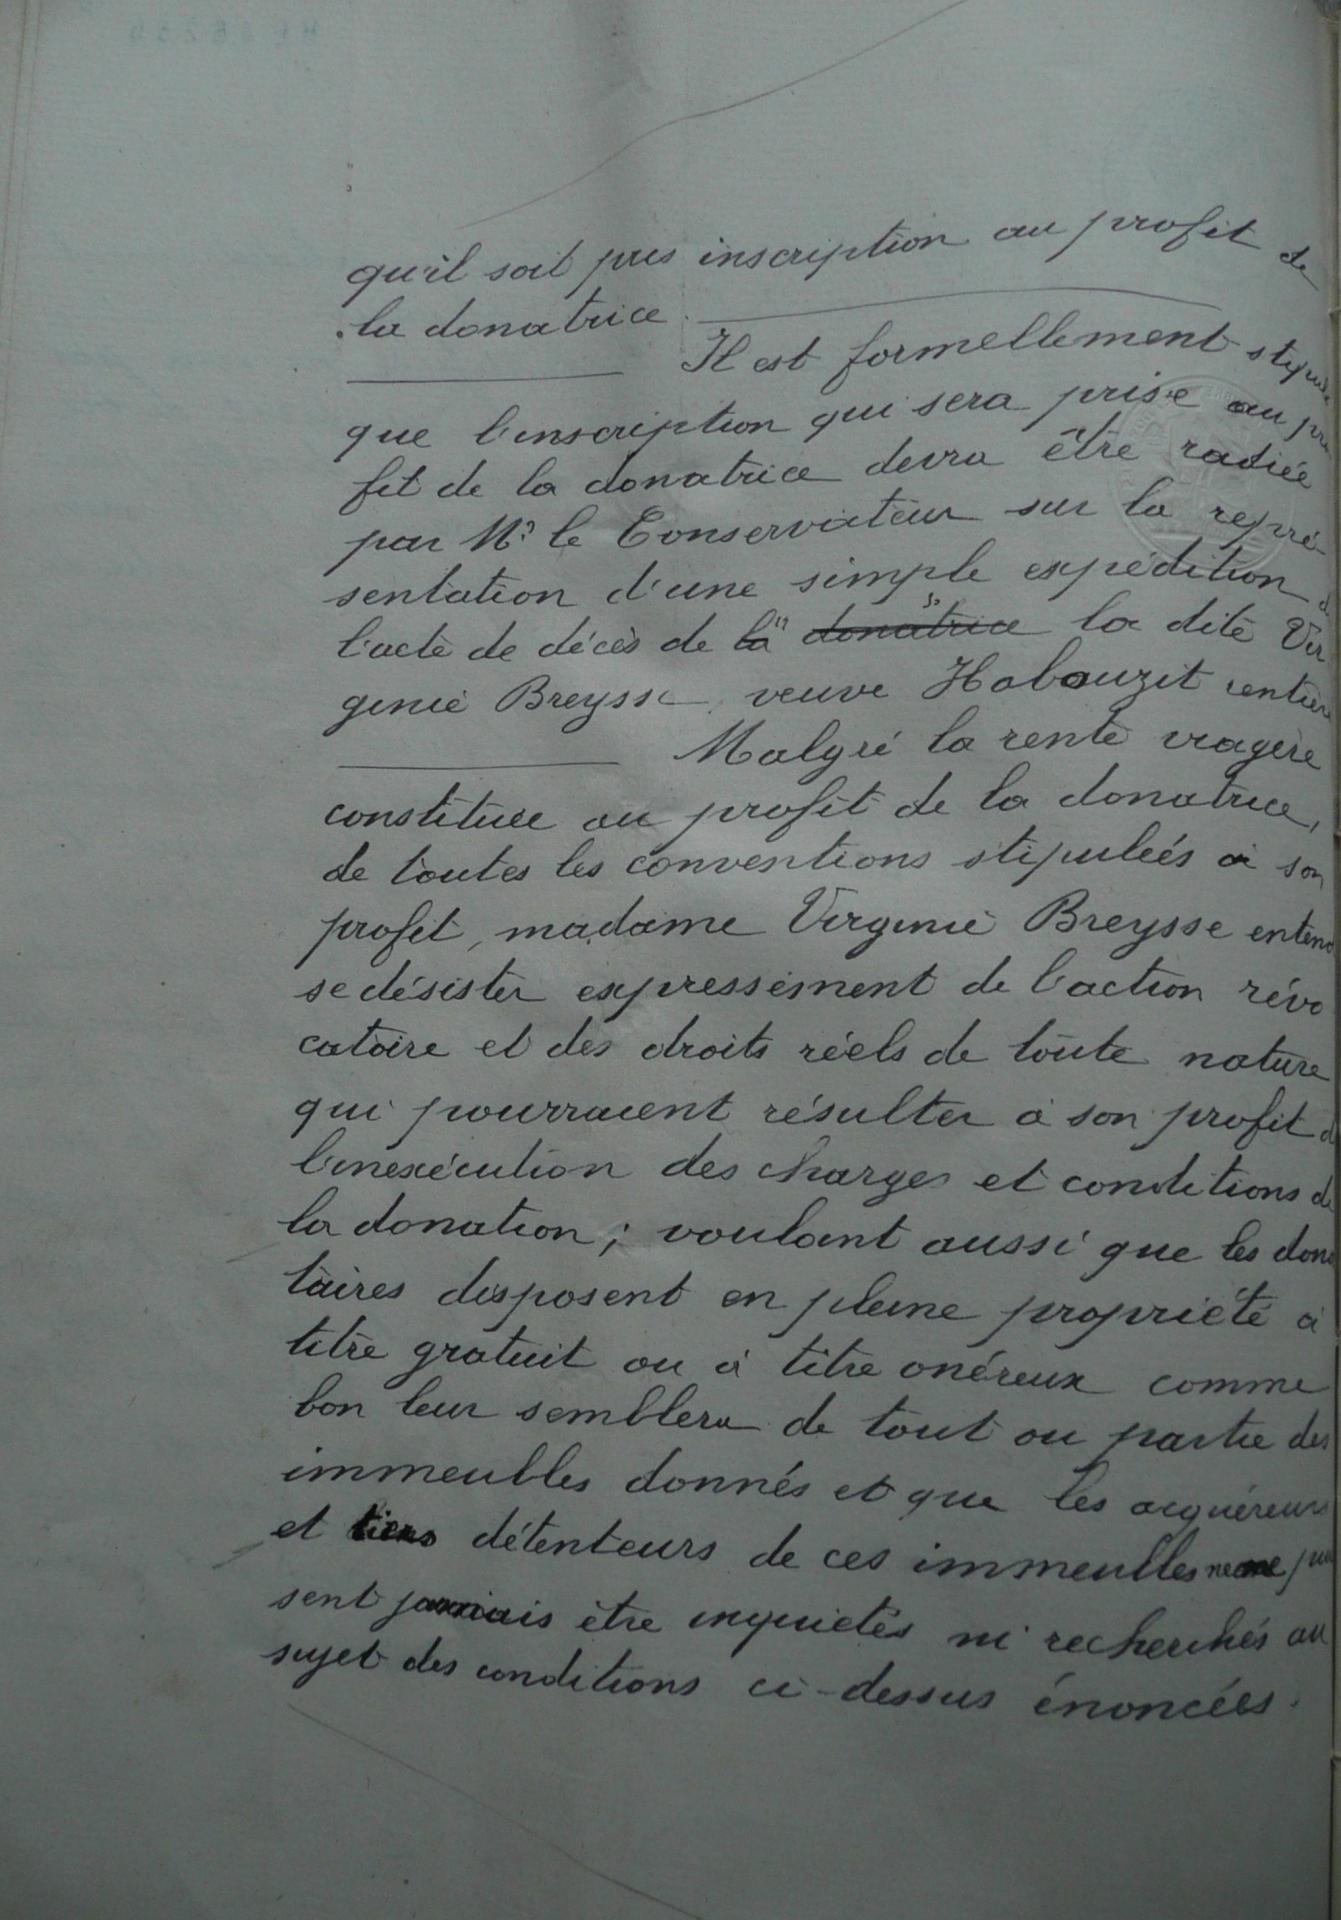 qu'il soit pris inscription au profit de
la donatrice.
Il est formellement stipulé
que l'inscription qui sera prise au pro
fit de la donatrice devra être radiée
par Mr le Conservateur sur la repré-
sentation d'une simple expédition de
l'acte de décès de la donatrice la dite Vir
ginie Breysse, veuve Habouzit rentière
Malgré la rente viagère
constituée au profit de la donatrice,
de toutes les conventions stipulées à son
profit, madame Virginie Breysse entend
se désister expressément de l'action révo
catoire et des droits réels de toute nature
qui pourraient résulter à son profit de
l'inexécution des charges et conditions de
la donation; voulant aussi que les dona
taires disposent en pleine propriété à
titre gratuit ou à titre onéreux comme
bon leur semblera de tout ou partie des
immeubles donnés et que les acquéreurs
et tiers détenteurs de ces immeubles ne puis
sent jamais être inquiétés ni recherchés au
sujet des conditions ci-dessus énoncées.